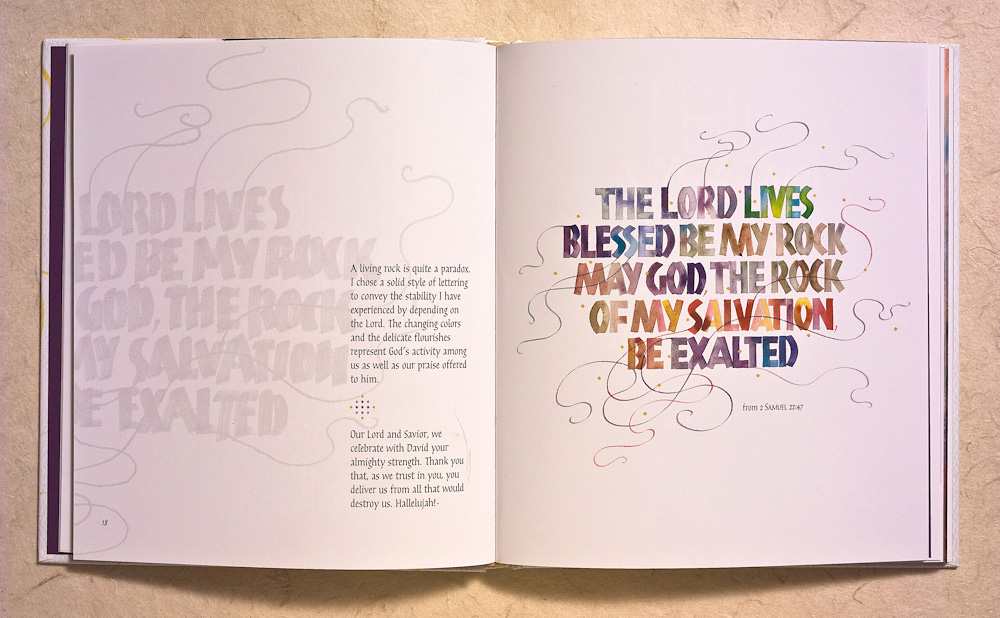 LORD LIVES
ED BE MY ROCK
GOD, THE ROCK
MY SALVATION
E EXALTED
A living rock is quite a paradox.
I chose a solid style of lettering
to convey the stability I have
experienced by depending on
the Lord. The changing colors
and the delicate flourishes
represent God's activity among
us as well as our praise offered
to him.
Our Lord and Savior, we
celebrate with David your
almighty strength. Thank you
that, as we trust in you, you
deliver us from all that would
destroy us. Hallelujah!
18
THE LORD LIVES
BLESSED BE MY ROCK
MAY GOD, THE ROCK
OF MY SALVATION,
BE EXALTED
from 2 SAMUEL 22:47